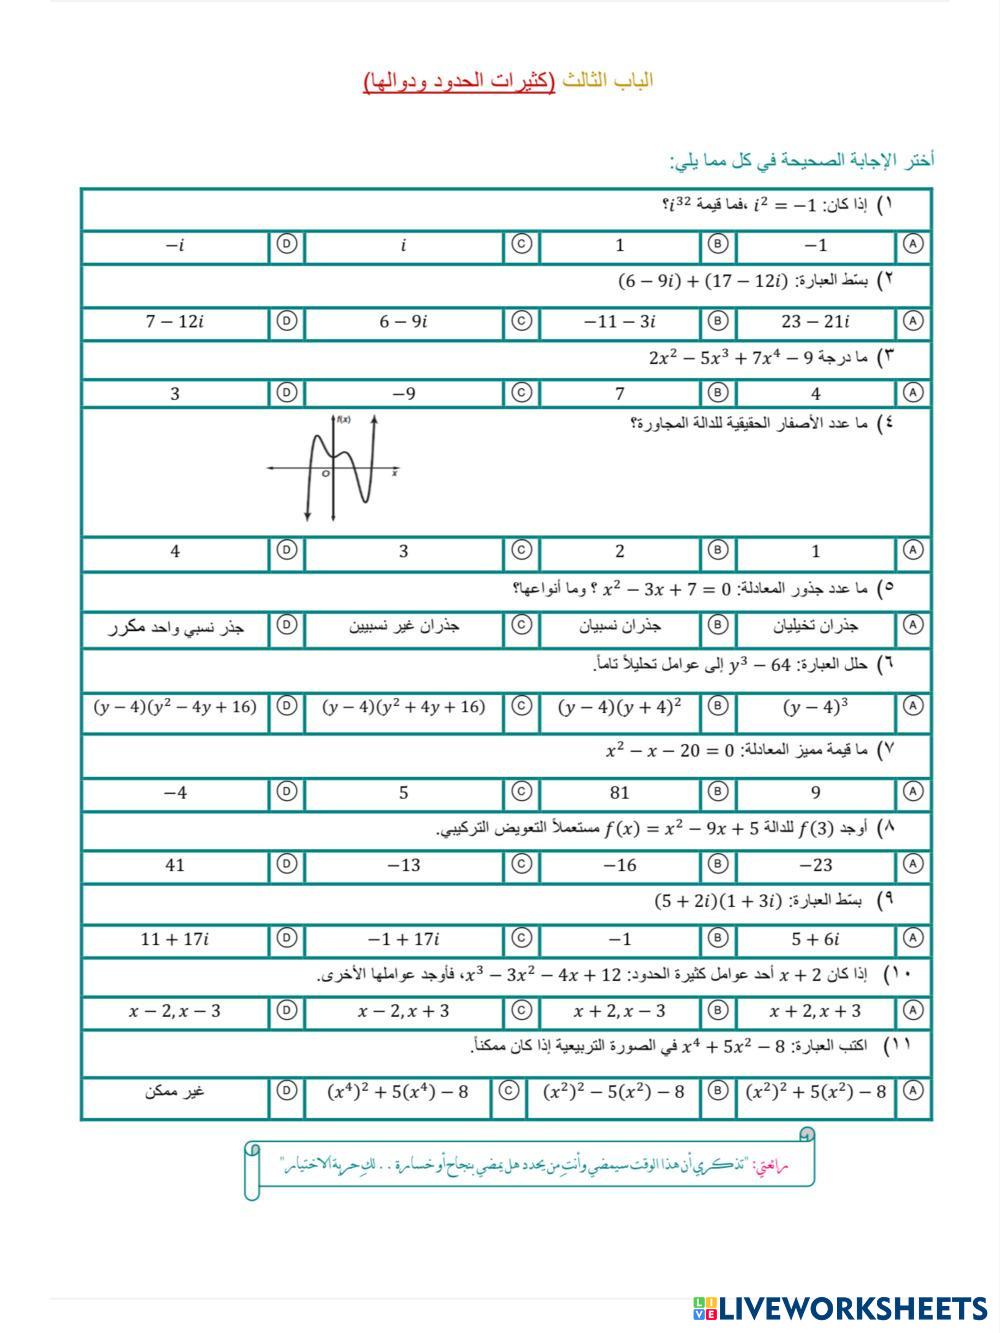 الباب الثالث (كثيرات الحدود ودوالها)
أختر الإجابة الصحيحة في كل مما يلي:
١) إذا كان: i² = −1 ،فما قيمة i³²؟
A −1 B 1 C i D −i
٢) بسّط العبارة: (6 − 9i) + (17 − 12i)
A 23 − 21i B −11 − 3i C 6 − 9i D 7 − 12i
٣) ما درجة 2x² − 5x³ + 7x⁴ − 9
A 4 B 7 C −9 D 3
٤) ما عدد الأصفار الحقيقية للدالة المجاورة؟
f(x)
O x
A 1 B 2 C 3 D 4
٥) ما عدد جذور المعادلة: x² − 3x + 7 = 0 ؟ وما أنواعها؟
A جذران تخيليان B جذران نسبيان C جذران غير نسبيين D جذر نسبي واحد مكرر
٦) حلل العبارة: y³ − 64 إلى عوامل تحليلاً تاماً.
A (y − 4)³ B (y − 4)(y + 4)² C (y − 4)(y² + 4y + 16) D (y − 4)(y² − 4y + 16)
٧) ما قيمة مميز المعادلة: x² − x − 20 = 0
A 9 B 81 C 5 D −4
٨) أوجد f(3) للدالة f(x) = x² − 9x + 5 مستعملاً التعويض التركيبي.
A −23 B −16 C −13 D 41
٩) بسّط العبارة: (5 + 2i)(1 + 3i)
A 5 + 6i B −1 C −1 + 17i D 11 + 17i
١٠) إذا كان x + 2 أحد عوامل كثيرة الحدود: x³ − 3x² − 4x + 12، فأوجد عواملها الأخرى.
A x + 2, x + 3 B x + 2, x − 3 C x − 2, x + 3 D x − 2, x − 3
١١) اكتب العبارة: x⁴ + 5x² − 8 في الصورة التربيعية إذا كان ممكناً.
A (x²)² + 5(x²) − 8 B (x²)² − 5(x²) − 8 C (x⁴)² + 5(x⁴) − 8 D غير ممكن
رائعتي: "تذكري أن هذا الوقت سيمضي وأنتِ من يحدد هل يمضي بنجاح أو خسارة . . لكِ حرية الاختيار"
LIVE LIVEWORKSHEETS